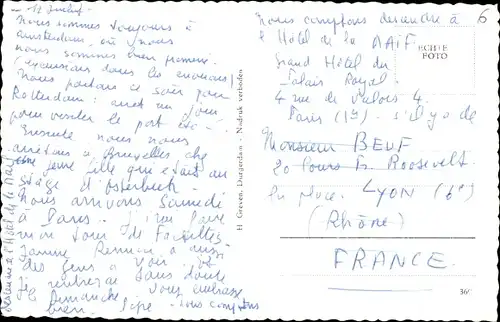 11 Juillet.
Nous sommes toujours à
Amsterdam, où nous
nous sommes bien promené
(excursions dans les environs)
Nous partons ce soir pour
Rotterdam: un jour
pour visiter le port etc.
Ensuite nous nous
arrêtons à Bruxelles chez
une jeune fille qui était au
stage d'Osterbeek.
Nous arrivons Samedi
à Paris. J'irai faire
un tour
Jeanne a aussi
des gens à voir, et
je rentrerai sans doute
le Dimanche. Vous embrasse
bien. Nous comptons
descendre à l'Hôtel de la Maïf
Nous comptons descendre à
l'Hôtel de la MAIF
Grand Hôtel du
Palais Royal.
4 rue de Valois 4
Paris (1er). s'il y a de
la place.
ECHTE
FOTO
H Greven, Laagerdam - Nadruk verboden
Monsieur BEUF
20 Cours Fr. Roosevelt.
LYON (6e)
(Rhône)
FRANCE.
36
6